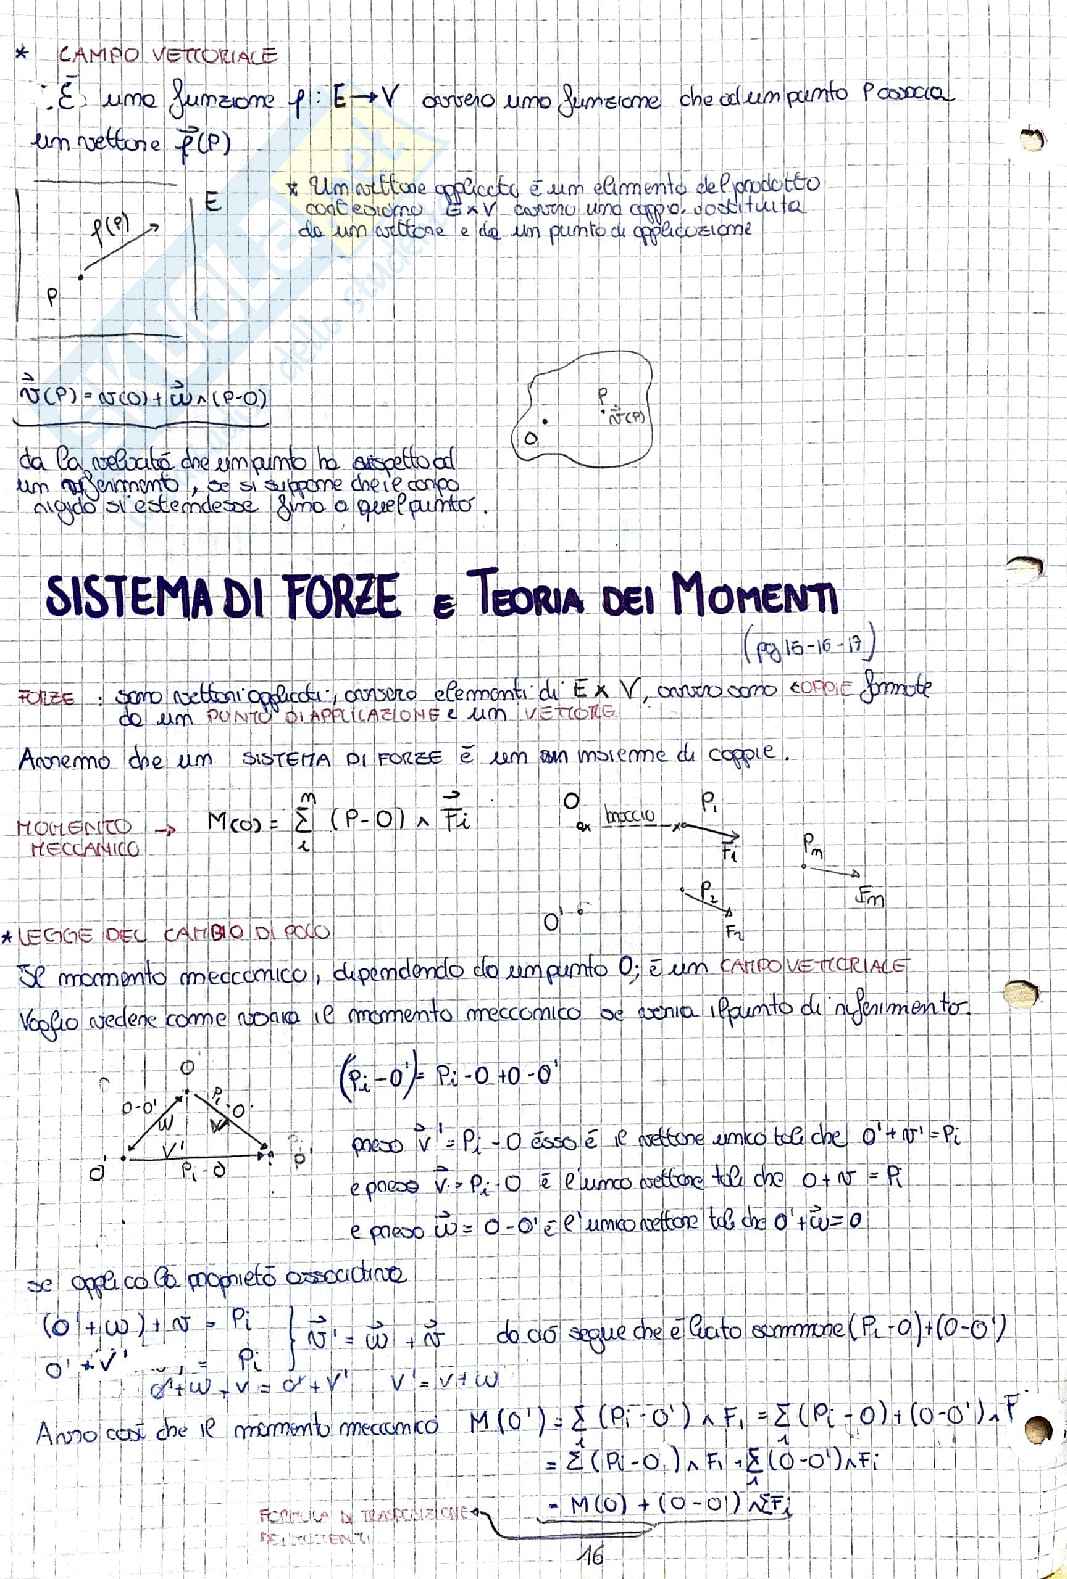 * CAMPO VETTORIALE
È una funzione f: E→V ovvero una funzione che ad un punto P associa
un vettore f(P)
* Un vettore applicato è un elemento del prodotto
cartesiano E×V ovvero una coppia costituita
da un vettore e da un punto di applicazione
E
f(P)
P
v(P) = v(O) + ω ∧ (P-O)
P
v(P)
O
da la velocità che un punto ha rispetto ad
un riferimento, se si suppone che il corpo
rigido si estendesse fino a quel punto.
SISTEMA DI FORZE e TEORIA DEI MOMENTI
(pg 15-16-17)
FORZE: sono vettori applicati, ovvero elementi di E × V, ovvero sono COPPIE formate
da un PUNTO DI APPLICAZIONE e un VETTORE
Avremo che un SISTEMA DI FORZE è un insieme di coppie.
MOMENTO → M(O) = Σ (P-O) ∧ Fi
MECCANICO
O braccio P1
Fi
Pm
Fm
P2
F2
O'
* LEGGE DEL CAMBIO DI POLO
Il momento meccanico, dipendendo da un punto O, è un CAMPO VETTORIALE
Voglio vedere come varia il momento meccanico se varia il punto di riferimento.
(Pi-O') = Pi-O+O-O'
O
O-O'
W
V'
O'
Pi-O
preso v' = Pi-O esso è il vettore unico tale che O'+v' = Pi
e preso v = Pi-O è l'unico vettore tale che O+v = Pi
e preso w = O-O' è l'unico vettore tale che O'+w = O
se applico la proprietà associativa
(O'+w)+v = Pi
O'+v' = Pi
v' = w + v da ciò segue che è lecito sommare (Pi-O)+(O-O')
O'+w+v = O'+v' v' = v+w
Avrò così che il momento meccanico M(O') = Σ (Pi-O') ∧ Fi = Σ (Pi-O)+(O-O') ∧ F
= Σ (Pi-O) ∧ Fi + Σ (O-O') ∧ Fi
= M(O) + (O-O') ∧ ΣFi
FORMULA DI TRASPOSIZIONE
DEI MOMENTI
16